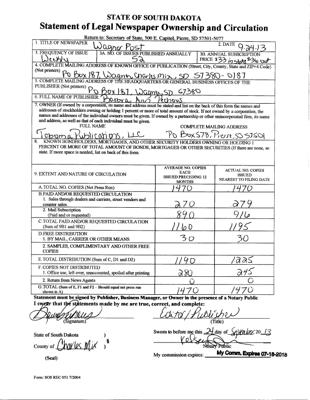 STATE OF SOUTH DAKOTA
Statement of Legal Newspaper Ownership and Circulation
Return to: Secretary of State, 500 E. Capitol, Pierre, SD 57501-5077
1. TITLE OF NEWSPAPER Wagner Post 2. DATE 9.24.13
3. FREQUENCY OF ISSUE Weekly 3A. NO. OF ISSUES PUBLISHED ANNUALLY 52 3B. ANNUAL SUBSCRIPTION PRICE $33
4. COMPLETE MAILING ADDRESS OF KNOWN OFFICE OF PUBLICATION (Street, City, County, State and ZIP+4 Code)
(Not printers) Po Box 187 Wagner, Charles Mix, SD 57380-0187
5. COMPLETE MAILING ADDRESS OF THE HEADQUARTERS OR GENERAL BUSINESS OFFICES OF THE
PUBLISHER (Not printers) Po Box 187, Wagner, SD 57380
6. FULL NAME OF PUBLISHER: Barbara Ann Pechous
7. OWNER (If owned by a corporation, its name and address must be stated and list on the back of this form the names and
addresses of stockholders owning or holding 1 percent or more of total amount of stock. If not owned by a corporation, the
names and addresses of the individual owners must be given. If owned by a partnership or other unincorporated firm, its name
and address, as well as that of each individual must be given.
FULL NAME COMPLETE MAILING ADDRESS
Publications, LLC Po Box 878, Pierre, SD 57501
8. KNOWN BONDHOLDERS, MORTGAGES, AND OTHER SECURITY HOLDERS OWNING OR HOLDING 1
PERCENT OR MORE OF TOTAL AMOUNT OF BONDS, MORTGAGES OR OTHER SECURITIES (If there are none, so
state. If more space is needed, list on back of this form.
9. EXTENT AND NATURE OF CIRCULATION AVERAGE NO. COPIES EACH ISSUED PRECEDING 12 MONTHS ACTUAL NO. COPIES ISSUED NEAREST TO FILING DATE
A. TOTAL NO. COPIES (Net Press Run) 1470 1470
B. PAID AND/OR REQUESTED CIRCULATION
1. Sales through dealers and carriers, street vendors and
counter sales 270 279
2. Mail Subscription
(Paid and or requested) 890 916
C. TOTAL PAID AND/OR REQUESTED CIRCULATION
(Sum of 9B1 and 9B2) 1160 1195
D. FREE DISTRIBUTION
1. BY MAIL, CARRIER OR OTHER MEANS 30 30
2. SAMPLES, COMPLIMENTARY AND OTHER FREE
COPIES
E. TOTAL DISTRIBUTION (Sum of C, D1 and D2) 1190 1225
F. COPIES NOT DISTRIBUTED
1. Office use, left over, unaccounted, spoiled after printing 280 245
2. Return from News Agents 0 0
G. TOTAL (Sum of E, F1 and F2 - Should equal net press run
shown in A) 1470 1470
Statement must be signed by Publisher, Business Manager, or Owner in the presence of a Notary Public
I certify that the statements made by me are true, correct, and complete:
Editor/Publisher
(Signature) (Title)
State of South Dakota )
County of Charles Mix ) §
(Seal)
Sworn to before me this 24 day of September, 20 13
Notary Public
My commission expires: My Comm. Expires 07-18-2018
Form: SOS REC 051 7/2004